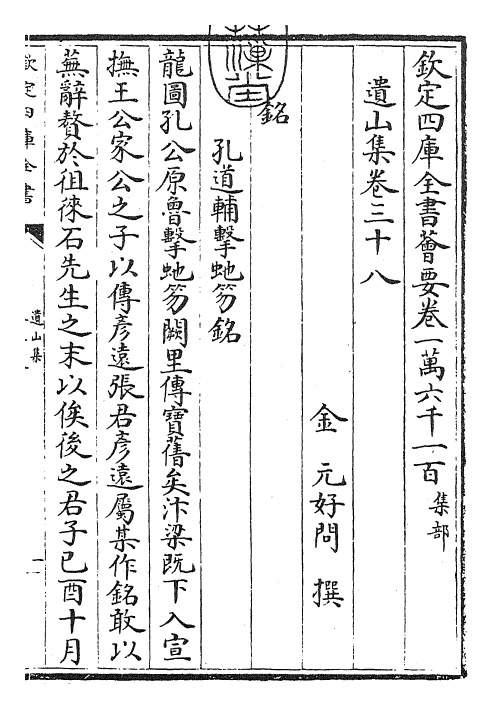 欽定四庫全書薈要卷一萬六千一百集部
遺山集卷三十八
金元好問撰
銘
孔道輔擊虵笏銘
龍圖孔公原魯擊虵笏闕里傳寶舊矣汴梁既下入宣
撫王公家公之子以傳彥遠張君彥遠屬某作銘敢以
蕪辭贅於徂徠石先生之末以俟後之君子已酉十月
欽定四庫全書
遺山集
一